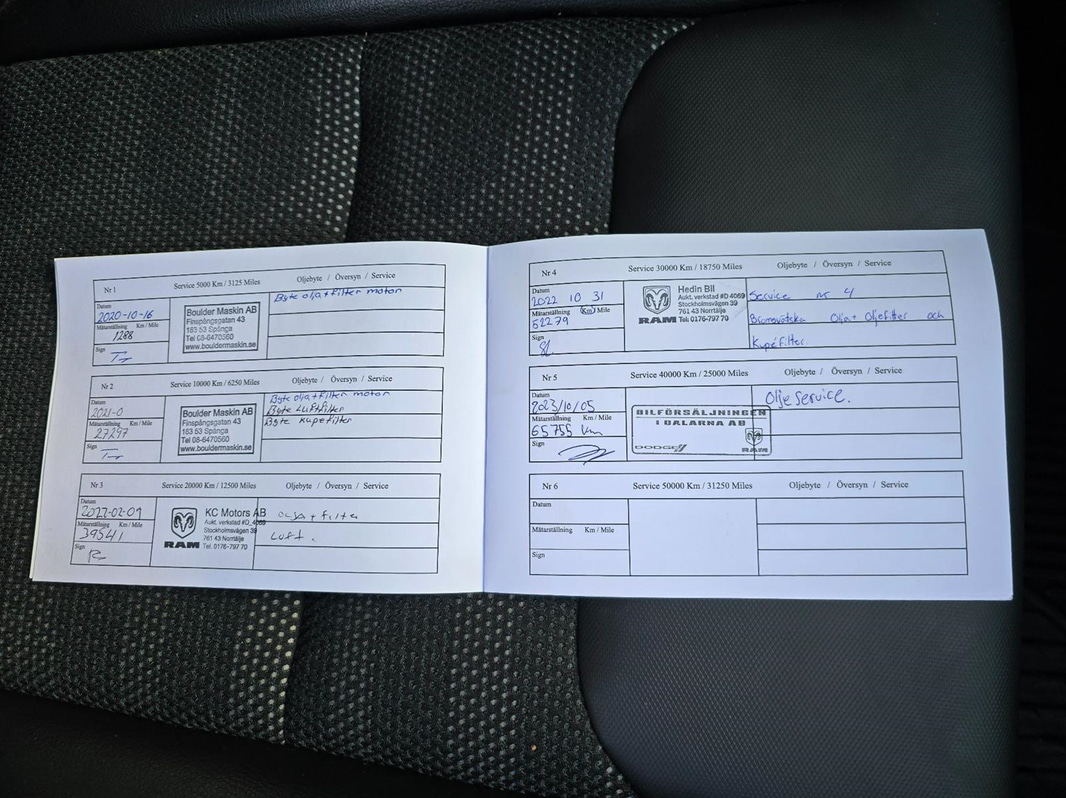 Nr 1 Service 5000 Km / 3125 Miles Oljebyte / Översyn / Service
Datum
2020-10-16
Mätarställning Km / Mile
1288
Sign
Boulder Maskin AB
Finspångsgatan 43
163 53 Spånga
Tel 08-6470560
www.bouldermaskin.se
Byte olja+filter motor
Nr 2 Service 10000 Km / 6250 Miles Oljebyte / Översyn / Service
Datum
2021-0
Mätarställning Km / Mile
27297
Sign
Boulder Maskin AB
Finspångsgatan 43
163 53 Spånga
Tel 08-6470560
www.bouldermaskin.se
Byte olja+filter motor
Byte Luftfilter
Byte Kupefilter
Nr 3 Service 20000 Km / 12500 Miles Oljebyte / Översyn / Service
Datum
2022-02-01
Mätarställning Km / Mile
39541
Sign
RAM
KC Motors AB
Aukt. verkstad #D_4069
Stockholmsvägen 39
761 43 Norrtälje
Tel. 0176-797 70
olja + filter
Luft.
Nr 4 Service 30000 Km / 18750 Miles Oljebyte / Översyn / Service
Datum
2022 10 31
Mätarställning Km / Mile
52279
Sign
RAM
Hedin Bil
Aukt. verkstad #D 4069
Stockholmsvägen 39
761 43 Norrtälje
Tel: 0176-797 70
Service nr 4
Bromsvätska Olja+ Oljefilter och
Kupéfilter
Nr 5 Service 40000 Km / 25000 Miles Oljebyte / Översyn / Service
Datum
2023/10/05
Mätarställning Km / Mile
65755 km
Sign
BILFÖRSÄLJNINGEN
I DALARNA AB
DODGE
RAM
Oljeservice.
Nr 6 Service 50000 Km / 31250 Miles Oljebyte / Översyn / Service
Datum
Mätarställning Km / Mile
Sign